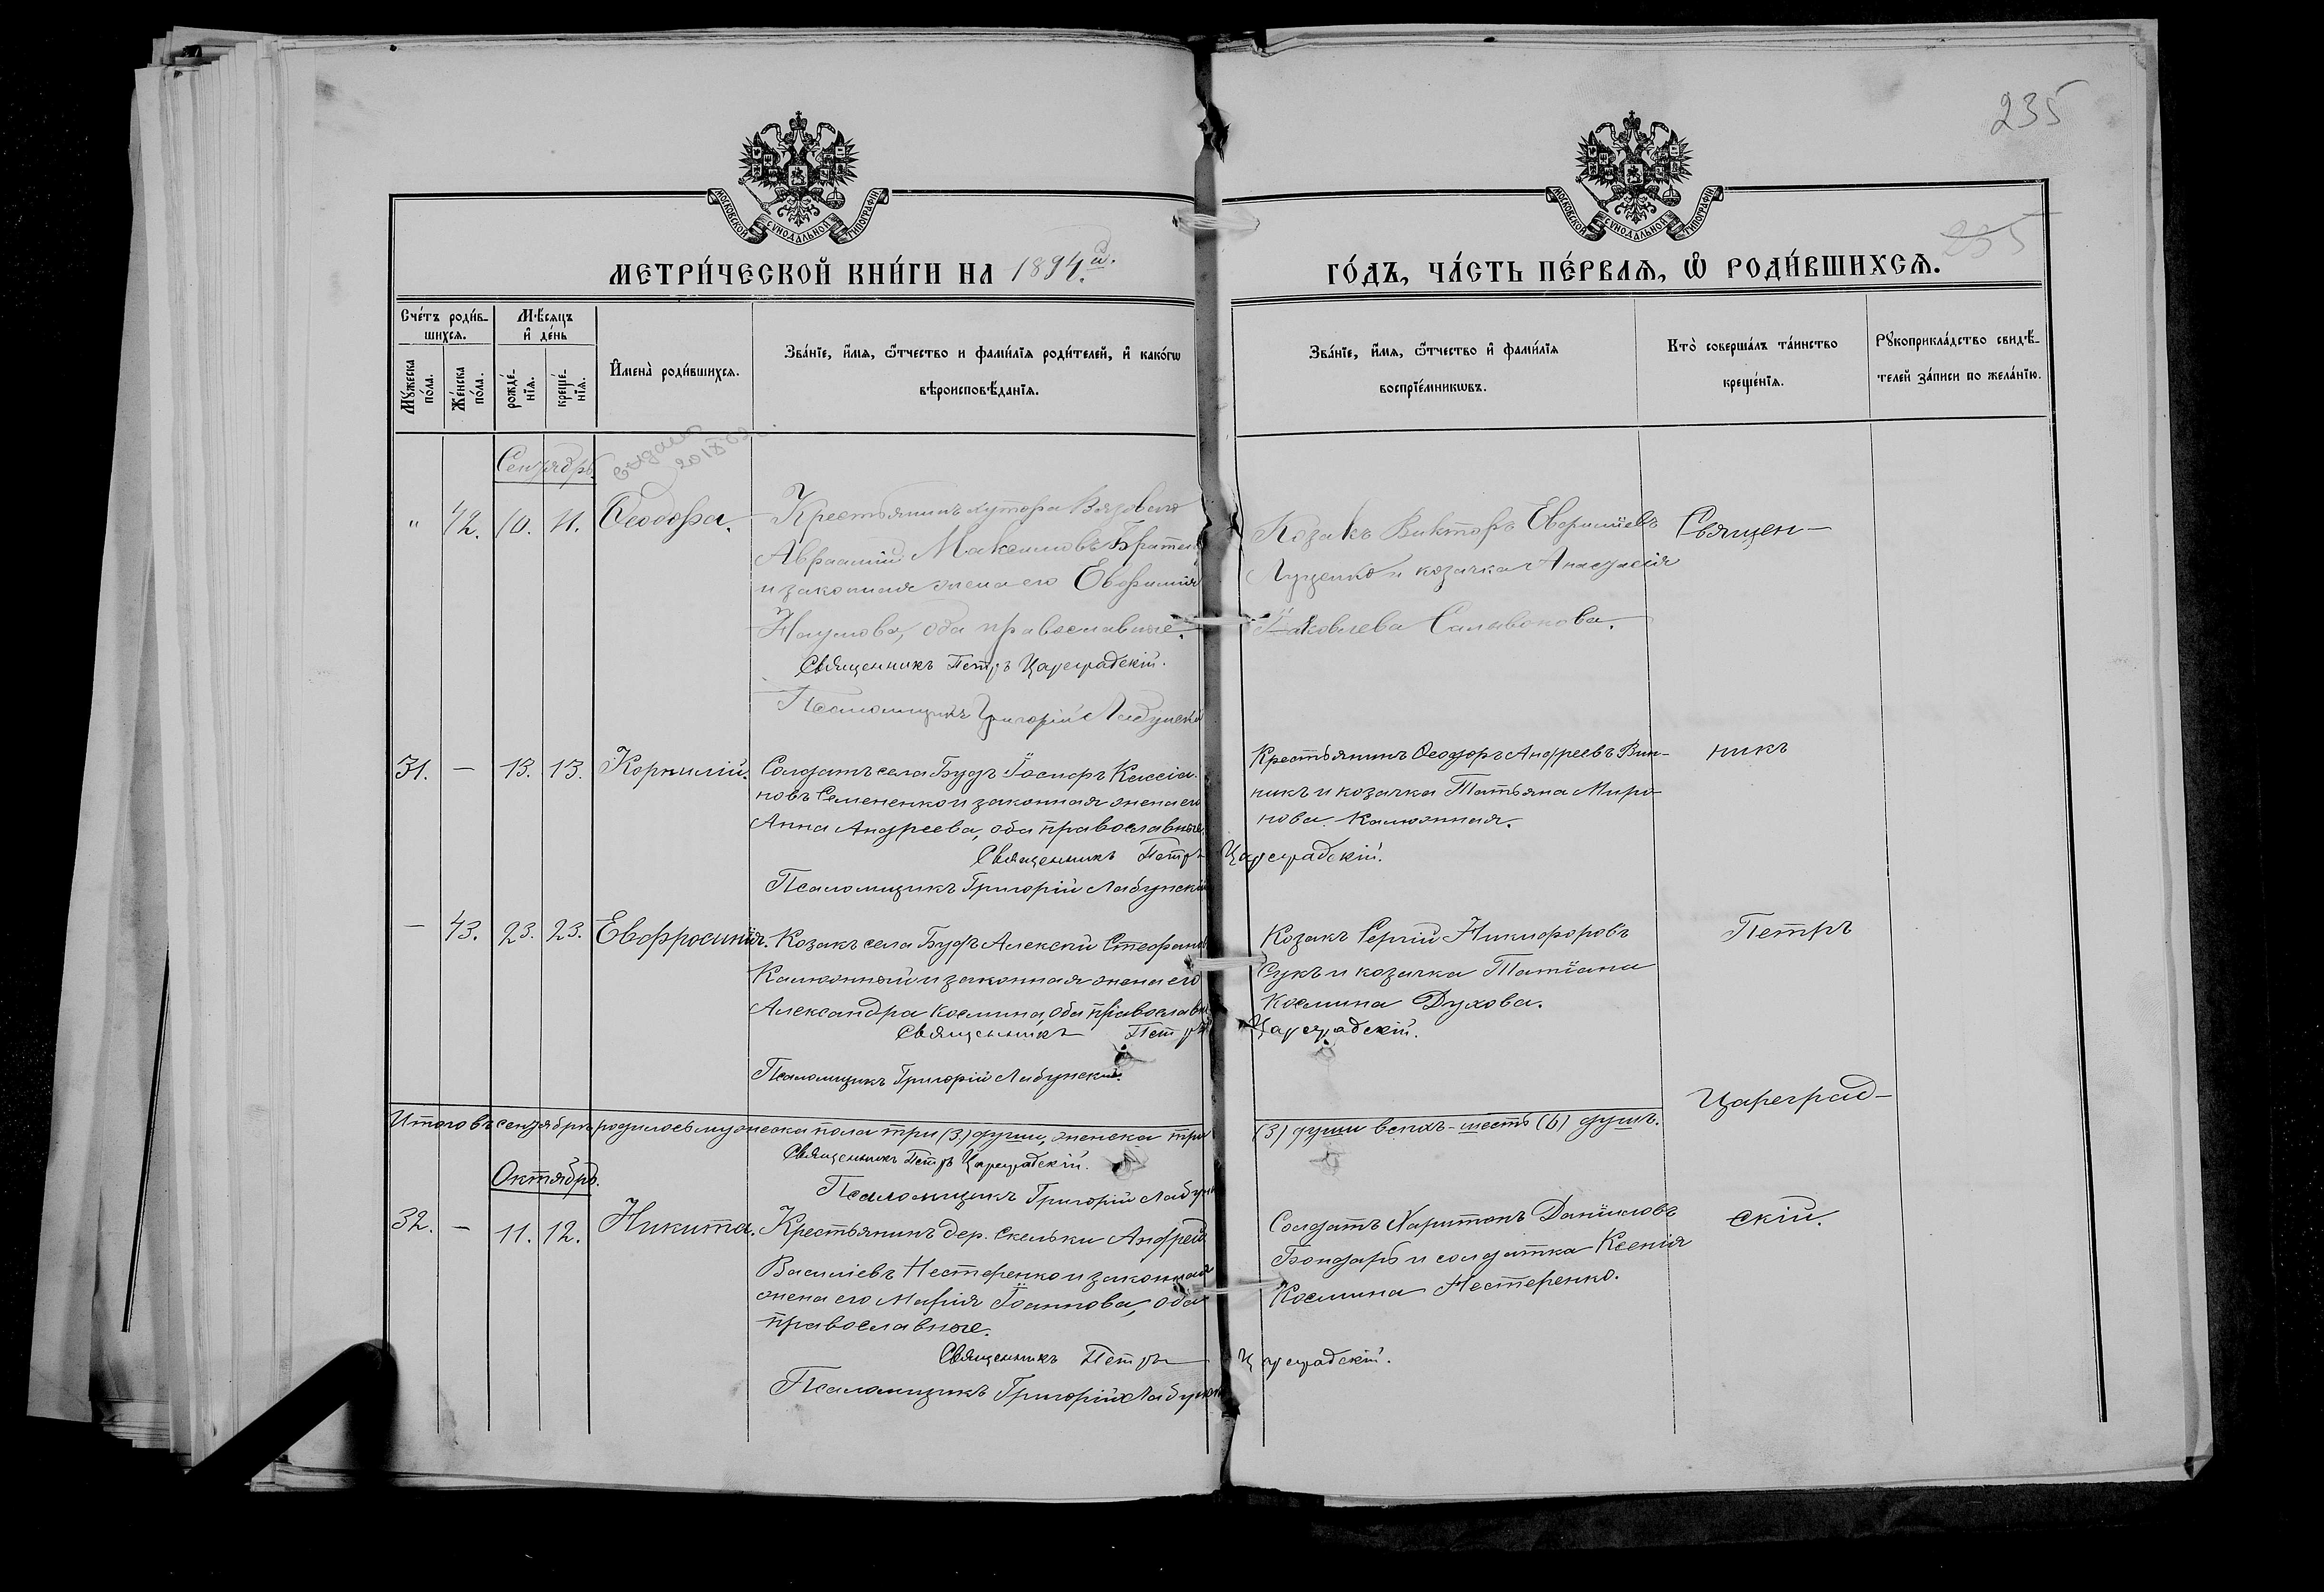 235
МОСКОВСКОЙ СѴНОДАЛЬНОЙ ТИПОГРАФІИ
МОСКОВСКОЙ СѴНОДАЛЬНОЙ ТИПОГРАФІИ
235
МЕТРИ́ЧЕСКОЙ КНИ́ГИ НА 1894й.
ГО́ДЪ, ЧА́СТЬ ПЕ́РВАЯ, Ѽ РОДИ́ВШИХСЯ.
Сче́тъ роди́в-
шихся.
Мꙋ́жеска
по́ла.
Же́нска
по́ла.
Мѣ́сяцъ
и҆ де́нь
рожде́-
нїя.
креще́-
нїя.
И҆мена̀ роди́вшихся.
Зва́нїе, и҆́мя, ѻ҆́тчество и фами́лїя роди́телей, и҆ како́гѡ
вѣроисповѣ́данїя.
Зва́нїе, и҆́мя, ѻ҆́тчество и҆ фами́лїя
воспрїе́мникѡвъ.
Кто̀ соверша́лъ та́инство
креще́нїя.
Рꙋкоприкла́дство свидѣ́-
телей за́писи по жела́нїю.
Сентябрь.
" 42. 10. 11. Ѳеодора.
Крестьянинъ хутора Вязоваго
Авраамій Максимовъ
и законная жена его Евфимія
Наумова, оба православные.
Священникъ Петръ Цареградскій.
Псаломщикъ Григорій Лабунскій
Козакъ Викторъ
Луценко и козачка Анастасія
Іаковлева
Священ-
31. — 13. 13. Корнилій.
Солдатъ села Будъ Іосифъ Кассіа-
новъ Семененко и законная жена его
Анна Андреева, оба православные.
Священникъ Петръ Цареградскій.
Псаломщикъ Григорій Лабунскій
Крестьянинъ Ѳеодоръ Андреевъ Вин-
никъ и козачка Татьяна Миро-
нова Калюжная.
никъ
— 43. 23. 23. Евфросинія.
Козакъ села Будъ Алексій Стефановъ
Калюжный и законная жена его
Александра Космина, оба православн
Священникъ Петръ Цареградскій.
Псаломщикъ Григорій Лабунскій.
Козакъ Сергій Никифоровъ
Сукъ и козачка Татіана
Космина Духова.
Петръ
Итого въ сентябрѣ родилось мужеска пола три (3) души, женска три
(3) души всехъ - шесть (6) душъ.
Священникъ Петръ Цареградскій.
Псаломщикъ Григорій Лабунск
Цареград-
Октябрь.
32. — 11. 12. Никита.
Крестьянинъ дер. Скельки Андрей
Василіевъ Нестеренко и законная
жена его Марія Іоаннова, оба
православные.
Священникъ Петръ Цареградскій.
Псаломщикъ Григорій Лабунскі
Солдатъ Харитонъ Даніиловъ
Бондарь и солдатка Ксенія
Космина Нестеренко.
скій.